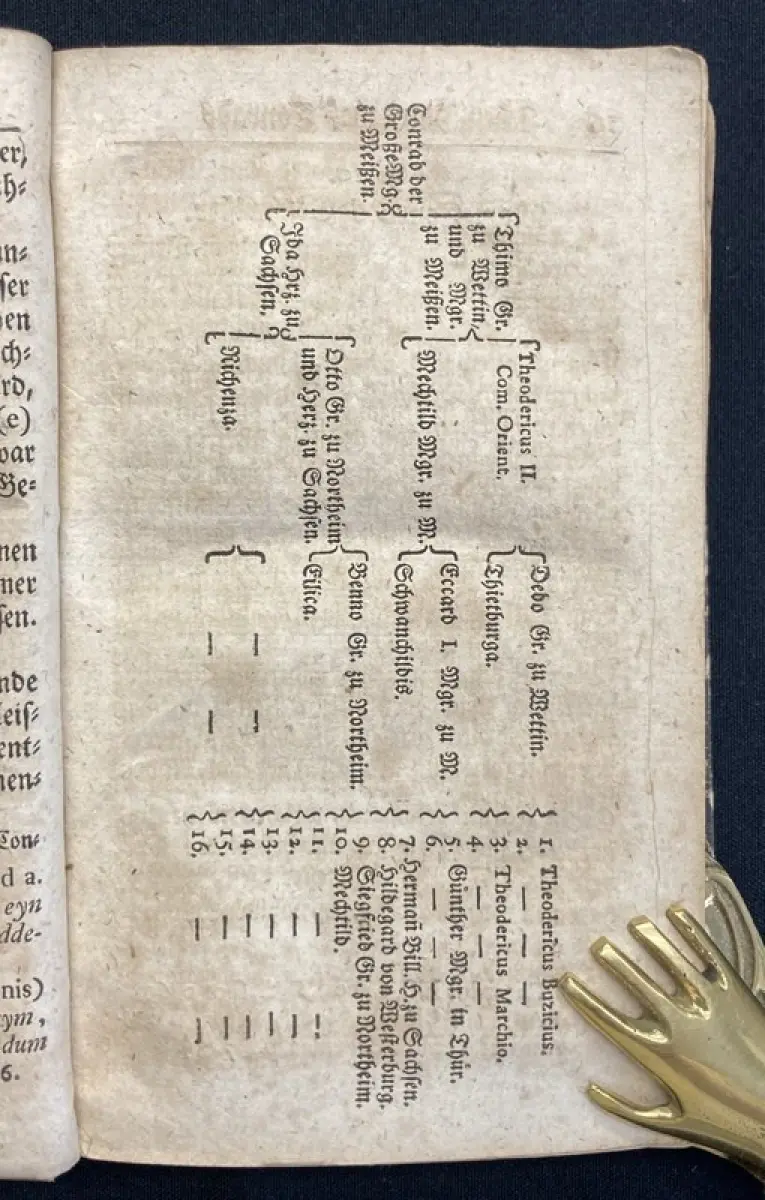 er,
ch⸗
un⸗
ser
en
ch⸗
rd,
(e)
war
Ge⸗
nen
mer
sen.
nde
eis⸗
ent⸗
nen⸗
Con⸗
d a.
eyn
dde-
nis)
ym,
dum
6.
Conrad der
Große Mg.
zu Meißen.
Thimo Gr.
zu Wettin,
und Mgr.
zu Meißen.
Ida Hrz. zu
Sachsen.
Theodericus II.
Com. Orient.
Mechtild Mgr. zu M.
Otto Gr. zu Northeim
und Herz. zu Sachsen.
Richenza.
Dedo Gr. zu Wettin.
Thietburga.
Eccard I. Mgr. zu M.
Schwanchildis.
Benno Gr. zu Northeim.
Eilica.
— —
— —
1. Theodericus Buzicius.
2. — — —
3. Theodericus Marchio.
4. — — —
5. Günther Mgr. in Thür.
6. — — —
7. Herman̄ Bill. H. zu Sachsen.
8. Hildegard von Westerburg.
9. Siegfried Gr. zu Northeim.
10. Mechtild.
11. — —
12. — —
13. — —
14. — —
15. — —
16. — —